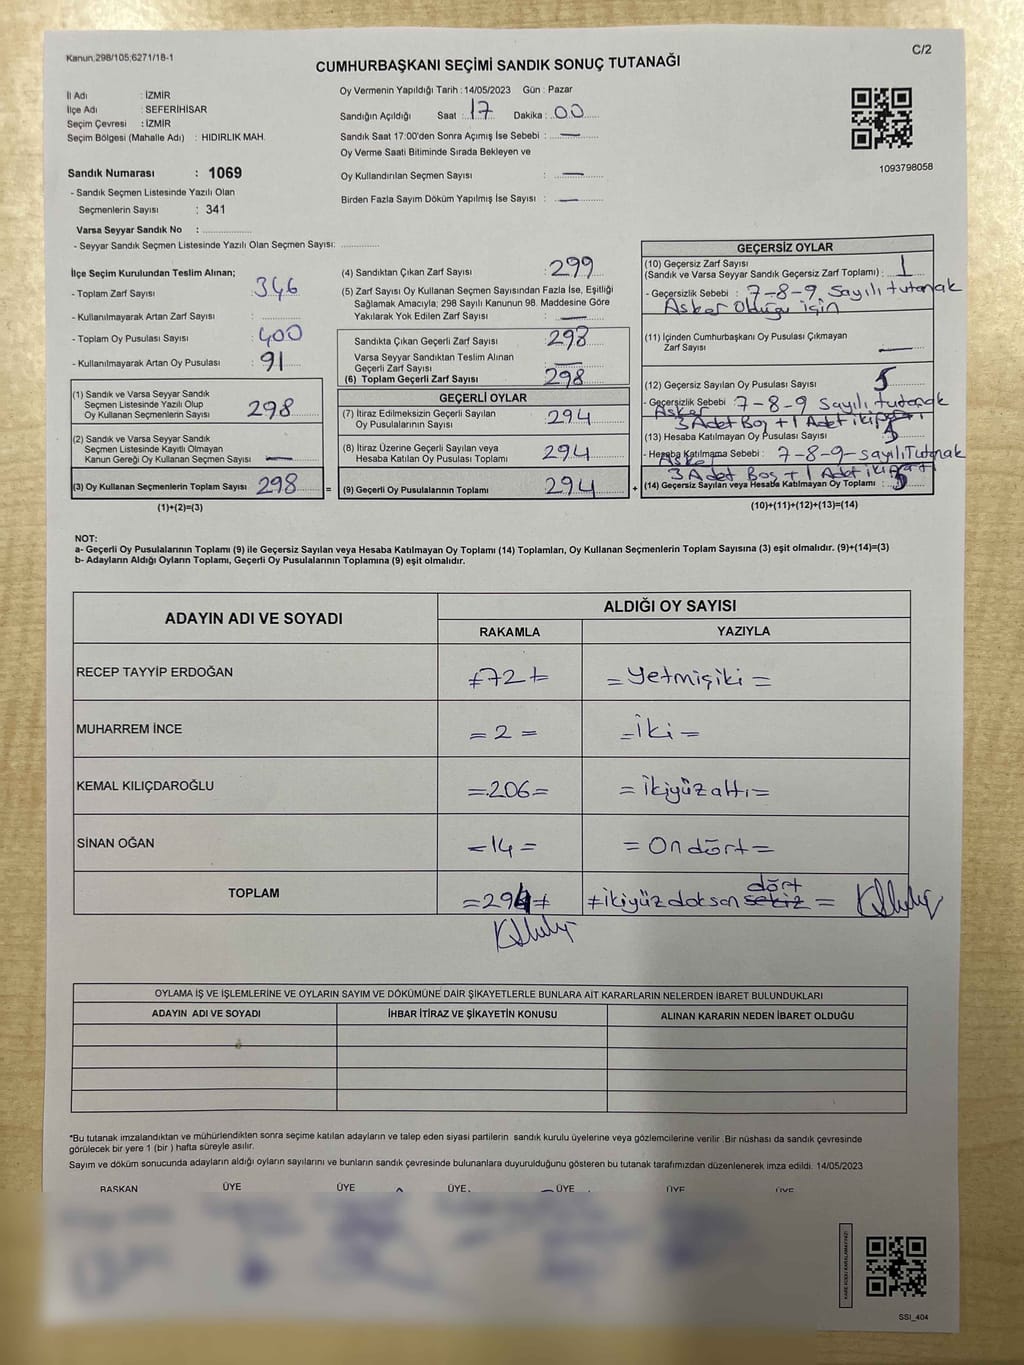 Kanun:298/105;6271/18-1
C/2
CUMHURBAŞKANI SEÇİMİ SANDIK SONUÇ TUTANAĞI
İl Adı : İZMİR
İlçe Adı : SEFERİHİSAR
Seçim Çevresi : İZMİR
Seçim Bölgesi (Mahalle Adı) : HIDIRLIK MAH.
Oy Vermenin Yapıldığı Tarih : 14/05/2023 Gün : Pazar
Sandığın Açıldığı Saat : 17 Dakika : 00
Sandık Saat 17:00'den Sonra Açımış İse Sebebi : —
Oy Verme Saati Bitiminde Sırada Bekleyen ve
Oy Kullandırılan Seçmen Sayısı : —
Birden Fazla Sayım Döküm Yapılmış İse Sayısı : —
1093798058
Sandık Numarası : 1069
- Sandık Seçmen Listesinde Yazılı Olan
Seçmenlerin Sayısı : 341
Varsa Seyyar Sandık No :
- Seyyar Sandık Seçmen Listesinde Yazılı Olan Seçmen Sayısı:
İlçe Seçim Kurulundan Teslim Alınan;
- Toplam Zarf Sayısı : 346
- Kullanılmayarak Artan Zarf Sayısı :
- Toplam Oy Pusulası Sayısı : 400
- Kullanılmayarak Artan Oy Pusulası : 91
(1) Sandık ve Varsa Seyyar Sandık
Seçmen Listesinde Yazılı Olup
Oy Kullanan Seçmenlerin Sayısı 298
(2) Sandık ve Varsa Seyyar Sandık
Seçmen Listesinde Kayıtlı Olmayan
Kanun Gereği Oy Kullanan Seçmen Sayısı —
(3) Oy Kullanan Seçmenlerin Toplam Sayısı 298 =
(1)+(2)=(3)
(4) Sandıktan Çıkan Zarf Sayısı : 299
(5) Zarf Sayısı Oy Kullanan Seçmen Sayısından Fazla İse, Eşitliği
Sağlamak Amacıyla; 298 Sayılı Kanunun 98. Maddesine Göre
Yakılarak Yok Edilen Zarf Sayısı : —
Sandıkta Çıkan Geçerli Zarf Sayısı : 298
Varsa Seyyar Sandıktan Teslim Alınan
Geçerli Zarf Sayısı : —
(6) Toplam Geçerli Zarf Sayısı : 298
GEÇERLİ OYLAR
(7) İtiraz Edilmeksizin Geçerli Sayılan
Oy Pusulasının Sayısı : 294
(8) İtiraz Üzerine Geçerli Sayılan veya
Hesaba Katılan Oy Pusulası Toplamı : 294
(9) Geçerli Oy Pusulalarının Toplamı : 294 +
GEÇERSİZ OYLAR
(10) Geçersiz Zarf Sayısı
(Sandık ve Varsa Seyyar Sandık Geçersiz Zarf Toplamı) : 1
- Geçersizlik Sebebi : 7-8-9 Sayılı tutanak
Asker Olduğu için
(11) İçinden Cumhurbaşkanı Oy Pusulası Çıkmayan
Zarf Sayısı —
(12) Geçersiz Sayılan Oy Pusulası Sayısı : 5
- Geçersizlik Sebebi : 7-8-9 Sayılı tutanak
Asker
3 Adet Boş + 1 Adet iki parti
(13) Hesaba Katılmayan Oy Pusulası Sayısı : 5
- Hesaba Katılmama Sebebi : 7-8-9-sayılı Tutanak
Asker
3 Adet Boş + 1 Adet iki parti
(14) Geçersiz Sayılan veya Hesaba Katılmayan Oy Toplamı : 5
(10)+(11)+(12)+(13)=(14)
NOT:
a- Geçerli Oy Pusulalarının Toplamı (9) ile Geçersiz Sayılan veya Hesaba Katılmayan Oy Toplamı (14) Toplamları, Oy Kullanan Seçmenlerin Toplam Sayısına (3) eşit olmalıdır. (9)+(14)=(3)
b- Adayların Aldığı Oyların Toplamı, Geçerli Oy Pusulalarının Toplamına (9) eşit olmalıdır.
ADAYIN ADI VE SOYADI
ALDIĞI OY SAYISI
RAKAMLA YAZIYLA
RECEP TAYYİP ERDOĞAN =72= =Yetmişiki=
MUHARREM İNCE =2= =İki=
KEMAL KILIÇDAROĞLU =206= =ikiyüzaltı=
SİNAN OĞAN =14= =Ondört=
TOPLAM =294= =ikiyüzdoksan sekiz dört=
OYLAMA İŞ VE İŞLEMLERİNE VE OYLARIN SAYIM VE DÖKÜMÜNE DAİR ŞİKAYETLERLE BUNLARA AİT KARARLARIN NELERDEN İBARET BULUNDUKLARI
ADAYIN ADI VE SOYADI İHBAR İTİRAZ VE ŞİKAYETİN KONUSU ALINAN KARARIN NEDEN İBARET OLDUĞU
*Bu tutanak imzalandıktan ve mühürlendikten sonra seçime katılan adayların ve talep eden siyasi partilerin sandık kurulu üyelerine veya gözlemcilerine verilir. Bir nüshası da sandık çevresinde
görülecek bir yere 1 (bir) hafta süreyle asılır.
Sayım ve döküm sonucunda adayların aldığı oyların sayılarını ve bunların sandık çevresinde bulunanlara duyurulduğunu gösteren bu tutanak tarafımızdan düzenlenerek imza edildi. 14/05/2023
BAŞKAN ÜYE ÜYE ÜYE ÜYE ÜYE ÜYE
SSI_404